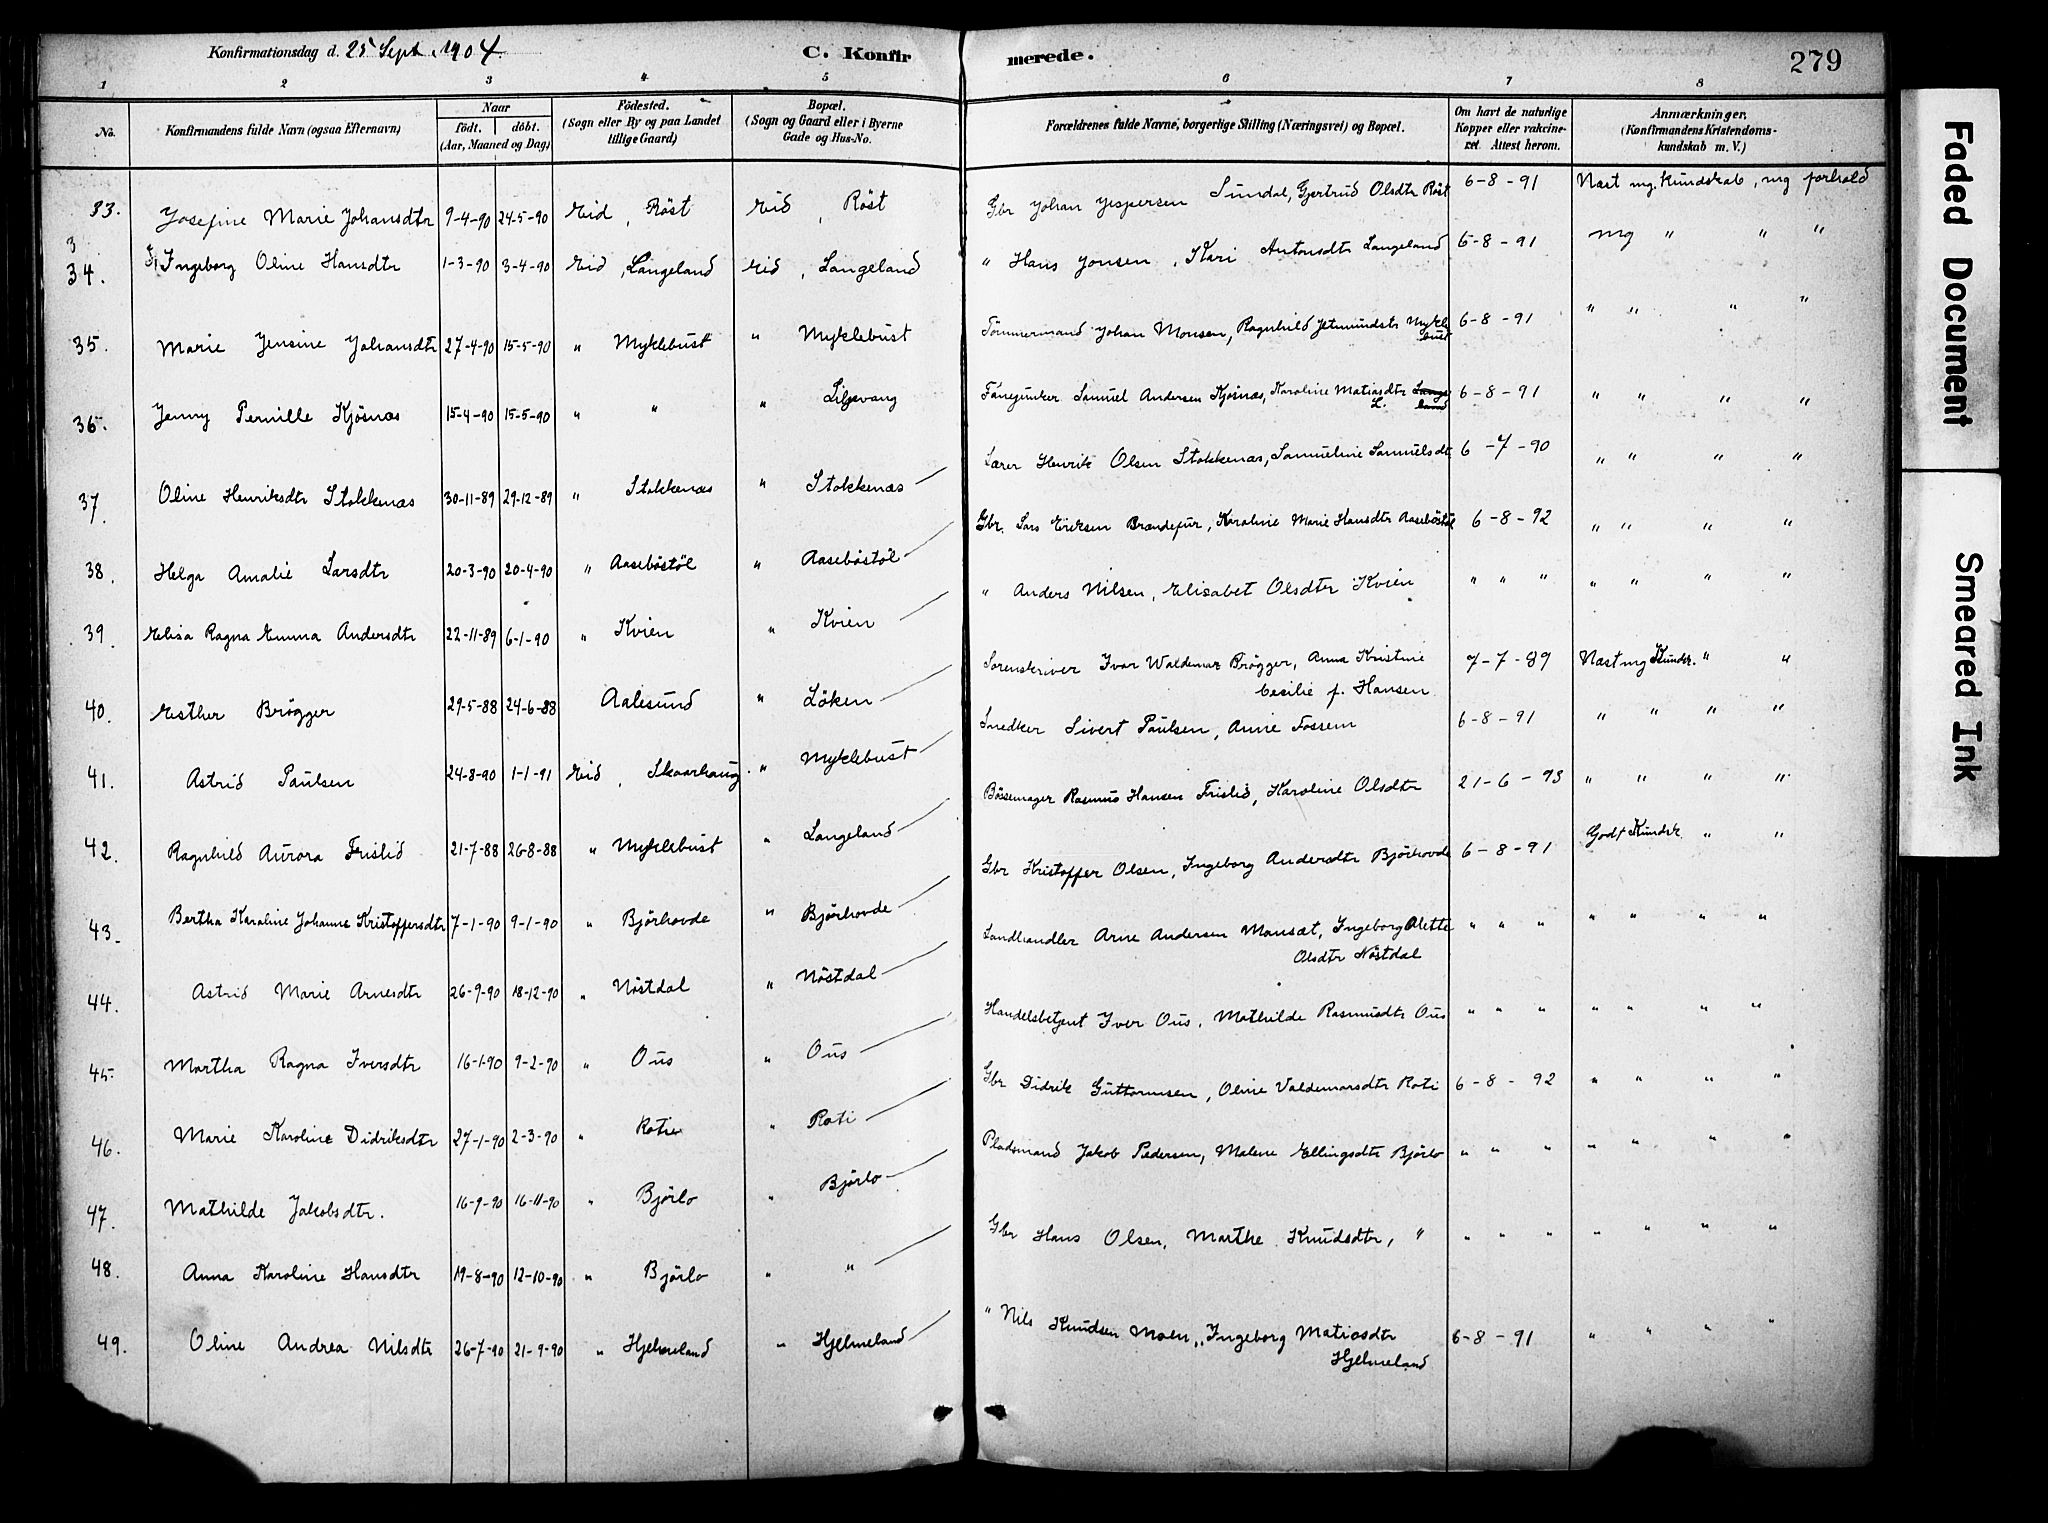 Konfirmationsdag d. 25 Sept. 1904. C. Konfirmerede. 279
1 2 3 4 5 6 7 8
No. Konfirmandens fulde Navn (ogsaa Efternavn) Naar født. døbt. (Aar, Maaned og Dag) Fødested. (Sogn eller By og paa Landet tillige Gaard) Bopæl. (Sogn og Gaard eller i Byerne Gade og Hus-No. Forældrenes fulde Navne, borgerlige Stilling (Næringsvei) og Bopæl. Om havt de naturlige Kopper eller vakcineret. Attest herom. Anmærkninger. (Konfirmandens Kristendomskundskab m. V.)
33. Josefine Marie Johansdtr 9-4-90 24-5-90 Eid, Röst Eid, Röst Gbr Johan Jespersen Sundal, Gjertrud Olsdtr Röst 6-8-91 Næst mg. kundskab, mg forhold
34. Ingeborg Oline Hansdtr 1-3-90 3-4-90 Eid, Langeland Eid, Langeland " Hans Jonsen, Kari Antonsdtr Langeland 6-8-91 mg " " "
35. Marie Jensine Johansdtr 27-4-90 15-5-90 " Myklebust " Myklebust Tømmermand Johan Monsen, Ragnhild Jetmundsdtr Myklebust 6-8-91 " " " "
36. Jenny Pernille Kjösnæs 15-4-90 15-5-90 " " " Liljevang Fanejunker Samuel Andersen Kjösnæs, Karoline Matiasdtr Langeland L. 6-8-91 " " " "
37. Oline Henriksdtr Stokkenæs 30-11-89 29-12-89 " Stokkenæs " Stokkenæs Lærer Henrik Olsen Stokkenæs, Samueline Samuelsdtr 6-7-90 " " " "
38. Helga Amalie Larsdtr 20-3-90 20-4-90 " Aasebøstöl " Aasebøstöl Gbr. Lars Eriksen Brandefur, Karoline Marie Hansdtr Aasebøstöl 6-8-92 " " " "
39. Elisa Ragna Emma Andersdtr 22-11-89 6-1-90 " Kvien " Kvien " Anders Nilsen, Elisabet Olsdtr Kvien " " " " " " "
40. Esther Brögger 29-5-88 24-6-88 Aalesund " Löken Sorenskriver Ivar Waldemar Brögger, Anna Kristine Cecilie f. Hansen 7-7-89 Næst mg Kundsk. " "
41. Astrid Paulsen 24-8-90 1-1-91 Eid, Skaarhaug. " Myklebust Snedker Sivert Paulsen, Anne Fossem 6-8-91 " " " "
42. Ragnhild Aurora Frislid 21-7-88 26-8-88 " Myklebust " Langeland Bøssemager Rasmus Hansen Frislid, Karoline Olsdtr 21-6-93 " " " "
43. Bertha Karoline Johanne Kristoffersdtr 7-1-90 9-1-90 " Björhovde " Björhovde Gbr Kristoffer Olsen, Ingeborg Andersdtr Björhovde 6-8-91 Godt Kundsk. " "
44. Astrid Marie Arnesdtr 26-9-90 18-12-90 " Nöstdal " Nöstdal Landhandler Arne Andersen Monsæt, Ingeborg Alette Olsdtr Nöstdal " " " " " " "
45. Martha Ragna Iversdtr 16-1-90 9-2-90 " Ous " Ous Handelsbetjent Iver Ous, Mathilde Rasmusdtr Ous " " " " " " "
46. Marie Karoline Didriksdtr 27-1-90 2-3-90 " Roti " Roti Gbr Didrik Guttormsen, Oline Valdemarsdtr Roti 6-8-92 " " " "
47. Mathilde Jakobsdtr. 16-9-90 16-11-90 " Björlo " Björlo Pladsmand Jakob Pedersen, Malene Ellingsdtr Björlo " " " " " " "
48. Anna Karoline Hansdtr 19-8-90 12-10-90 " Björlo " " Gbr Hans Olsen, Marthe Knudsdtr, " " " " " " " "
49. Oline Andrea Nilsdtr 26-7-90 21-9-90 " Hjelmeland " Hjelmeland " Nils Knudsen Moen, Ingeborg Matiasdtr Hjelmeland 6-8-91 " " " "
Faded Document
Smeared Ink